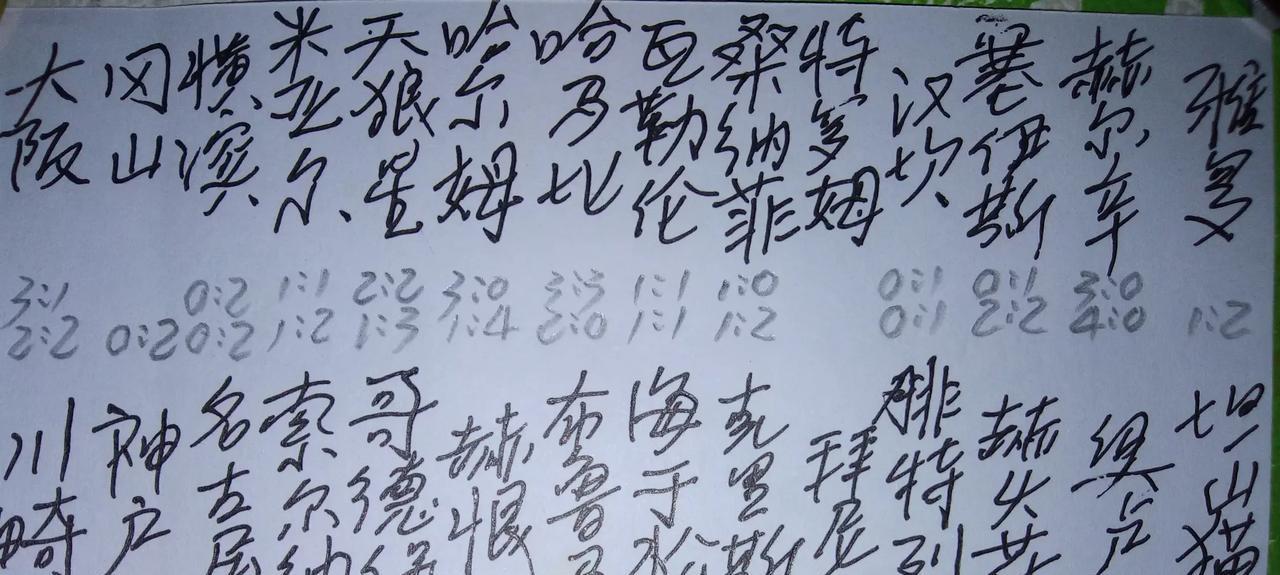 大阪
冈山
横滨
米亚尔
天狼星
哈尔姆
哈马比
瓦勒伦
桑纳菲
特罗姆
汉坎
塞伊斯
赫尔辛
雅罗
3:1 0:2 1:1 2:2 3:0 3:3 1:1 1:0 0:1 0:1 3:0
2:2 0:2 0:2 1:2 1:3 1:4 2:0 1:1 1:2 0:1 2:2 4:0 1:2
川崎
神户
名古屋
索尔纳
哥德堡
赫根
布鲁马
海于松
克里斯
拜尼
腓特列
赫尔
俱卢
山猫